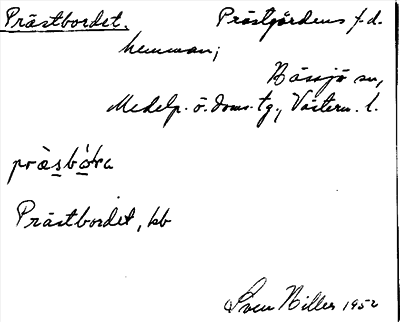 Prästbordet. Prästgårdens f.d.
hemman;
Hässjö sn,
Medelp. ö. doms. tg., Västern. l.
pràsbó̱ŕa
Prästbordet, kb
Sven Hiller 1952